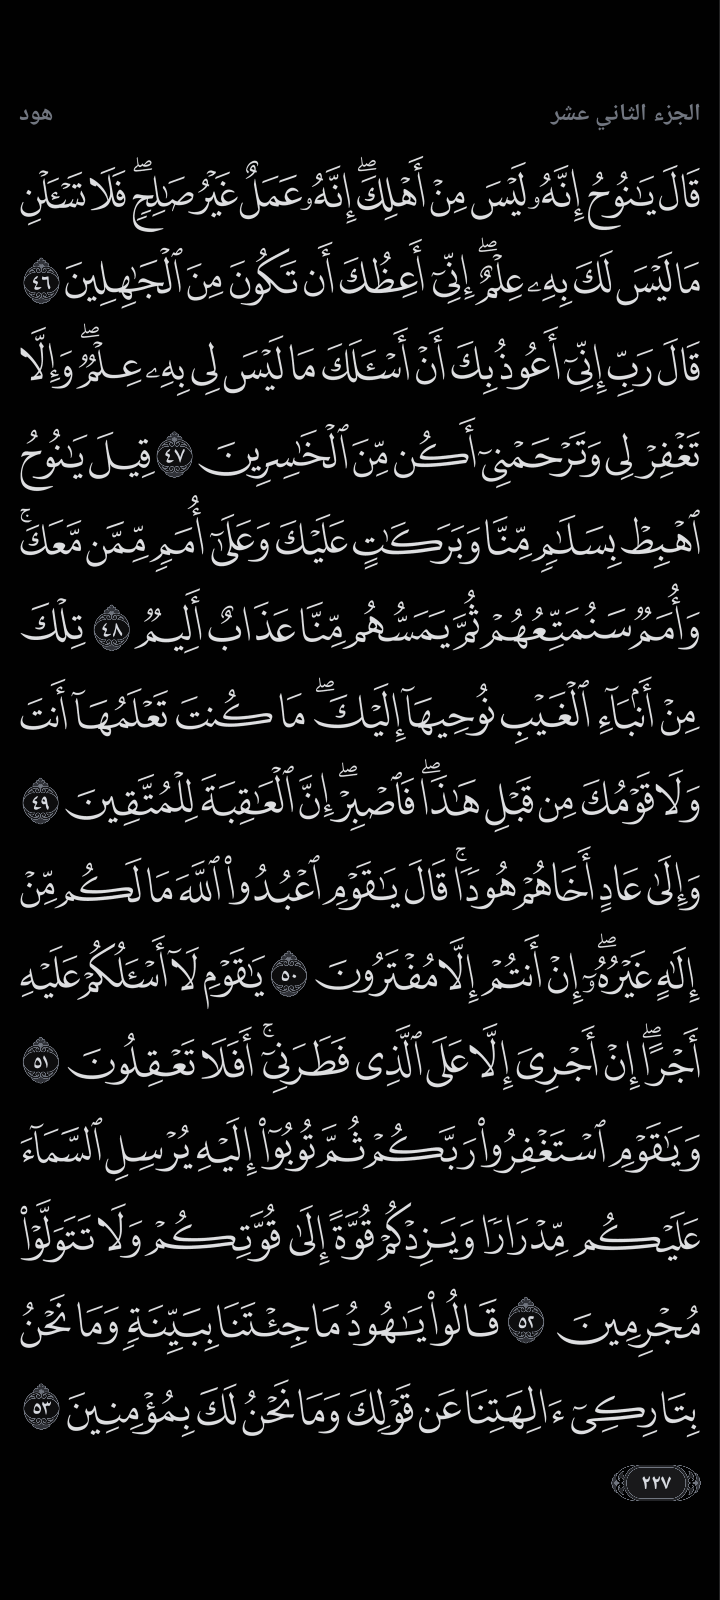 الجزء الثاني عشر
هود
قَالَ يَٰنُوحُ إِنَّهُۥ لَيْسَ مِنْ أَهْلِكَۖ إِنَّهُۥ عَمَلٌ غَيْرُ صَٰلِحٖۖ فَلَا تَسْـَٔلْنِ
مَا لَيْسَ لَكَ بِهِۦ عِلْمٌۖ إِنِّىٓ أَعِظُكَ أَن تَكُونَ مِنَ ٱلْجَٰهِلِينَ ٤٦
قَالَ رَبِّ إِنِّىٓ أَعُوذُ بِكَ أَنْ أَسْـَٔلَكَ مَا لَيْسَ لِى بِهِۦ عِلْمٌۖ وَإِلَّا
تَغْفِرْ لِى وَتَرْحَمْنِىٓ أَكُن مِّنَ ٱلْخَٰسِرِينَ ٤٧ قِيلَ يَٰنُوحُ
ٱهْبِطْ بِسَلَٰمٍ مِّنَّا وَبَرَكَٰتٍ عَلَيْكَ وَعَلَىٰٓ أُمَمٍ مِّمَّن مَّعَكَۚ
وَأُمَمٌ سَنُمَتِّعُهُمْ ثُمَّ يَمَسُّهُم مِّنَّا عَذَابٌ أَلِيمٌ ٤٨ تِلْكَ
مِنْ أَنۢبَآءِ ٱلْغَيْبِ نُوحِيهَآ إِلَيْكَۖ مَا كُنتَ تَعْلَمُهَآ أَنتَ
وَلَا قَوْمُكَ مِن قَبْلِ هَٰذَاۖ فَٱصْبِرْۖ إِنَّ ٱلْعَٰقِبَةَ لِلْمُتَّقِينَ ٤٩
وَإِلَىٰ عَادٍ أَخَاهُمْ هُودًاۚ قَالَ يَٰقَوْمِ ٱعْبُدُوا۟ ٱللَّهَ مَا لَكُم مِّنْ
إِلَٰهٍ غَيْرُهُۥٓۖ إِنْ أَنتُمْ إِلَّا مُفْتَرُونَ ٥٠ يَٰقَوْمِ لَآ أَسْـَٔلُكُمْ عَلَيْهِ
أَجْرًاۖ إِنْ أَجْرِىَ إِلَّا عَلَى ٱلَّذِى فَطَرَنِىٓۚ أَفَلَا تَعْقِلُونَ ٥١
وَيَٰقَوْمِ ٱسْتَغْفِرُوا۟ رَبَّكُمْ ثُمَّ تُوبُوٓا۟ إِلَيْهِ يُرْسِلِ ٱلسَّمَآءَ
عَلَيْكُم مِّدْرَارًا وَيَزِدْكُمْ قُوَّةً إِلَىٰ قُوَّتِكُمْ وَلَا تَتَوَلَّوْا۟
مُجْرِمِينَ ٥٢ قَالُوا۟ يَٰهُودُ مَا جِئْتَنَا بِبَيِّنَةٍ وَمَا نَحْنُ
بِتَارِكِىٓ ءَالِهَتِنَا عَن قَوْلِكَ وَمَا نَحْنُ لَكَ بِمُؤْمِنِينَ ٥٣
٢٢٧